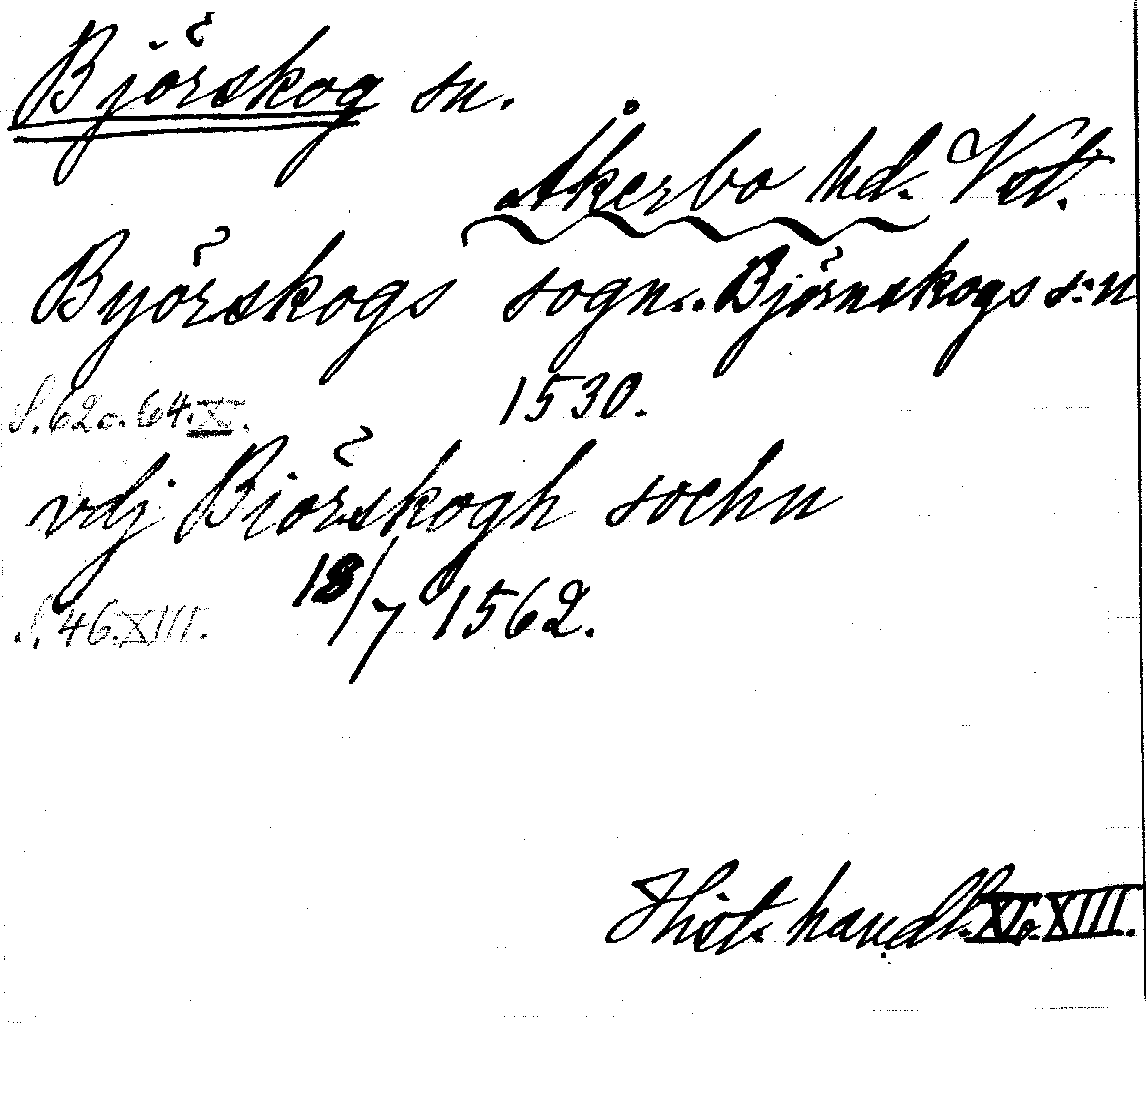 Björskog sn.
Åkerbo hd. Vstl.
Byörskogs sogn.. Björnskogs s:n
S. 62 o. 64. XI. 1530.
vdj Biörskogh sochn
S. 46. XIII. 18/7 1562.
Hist. handl. XI o. XIII.